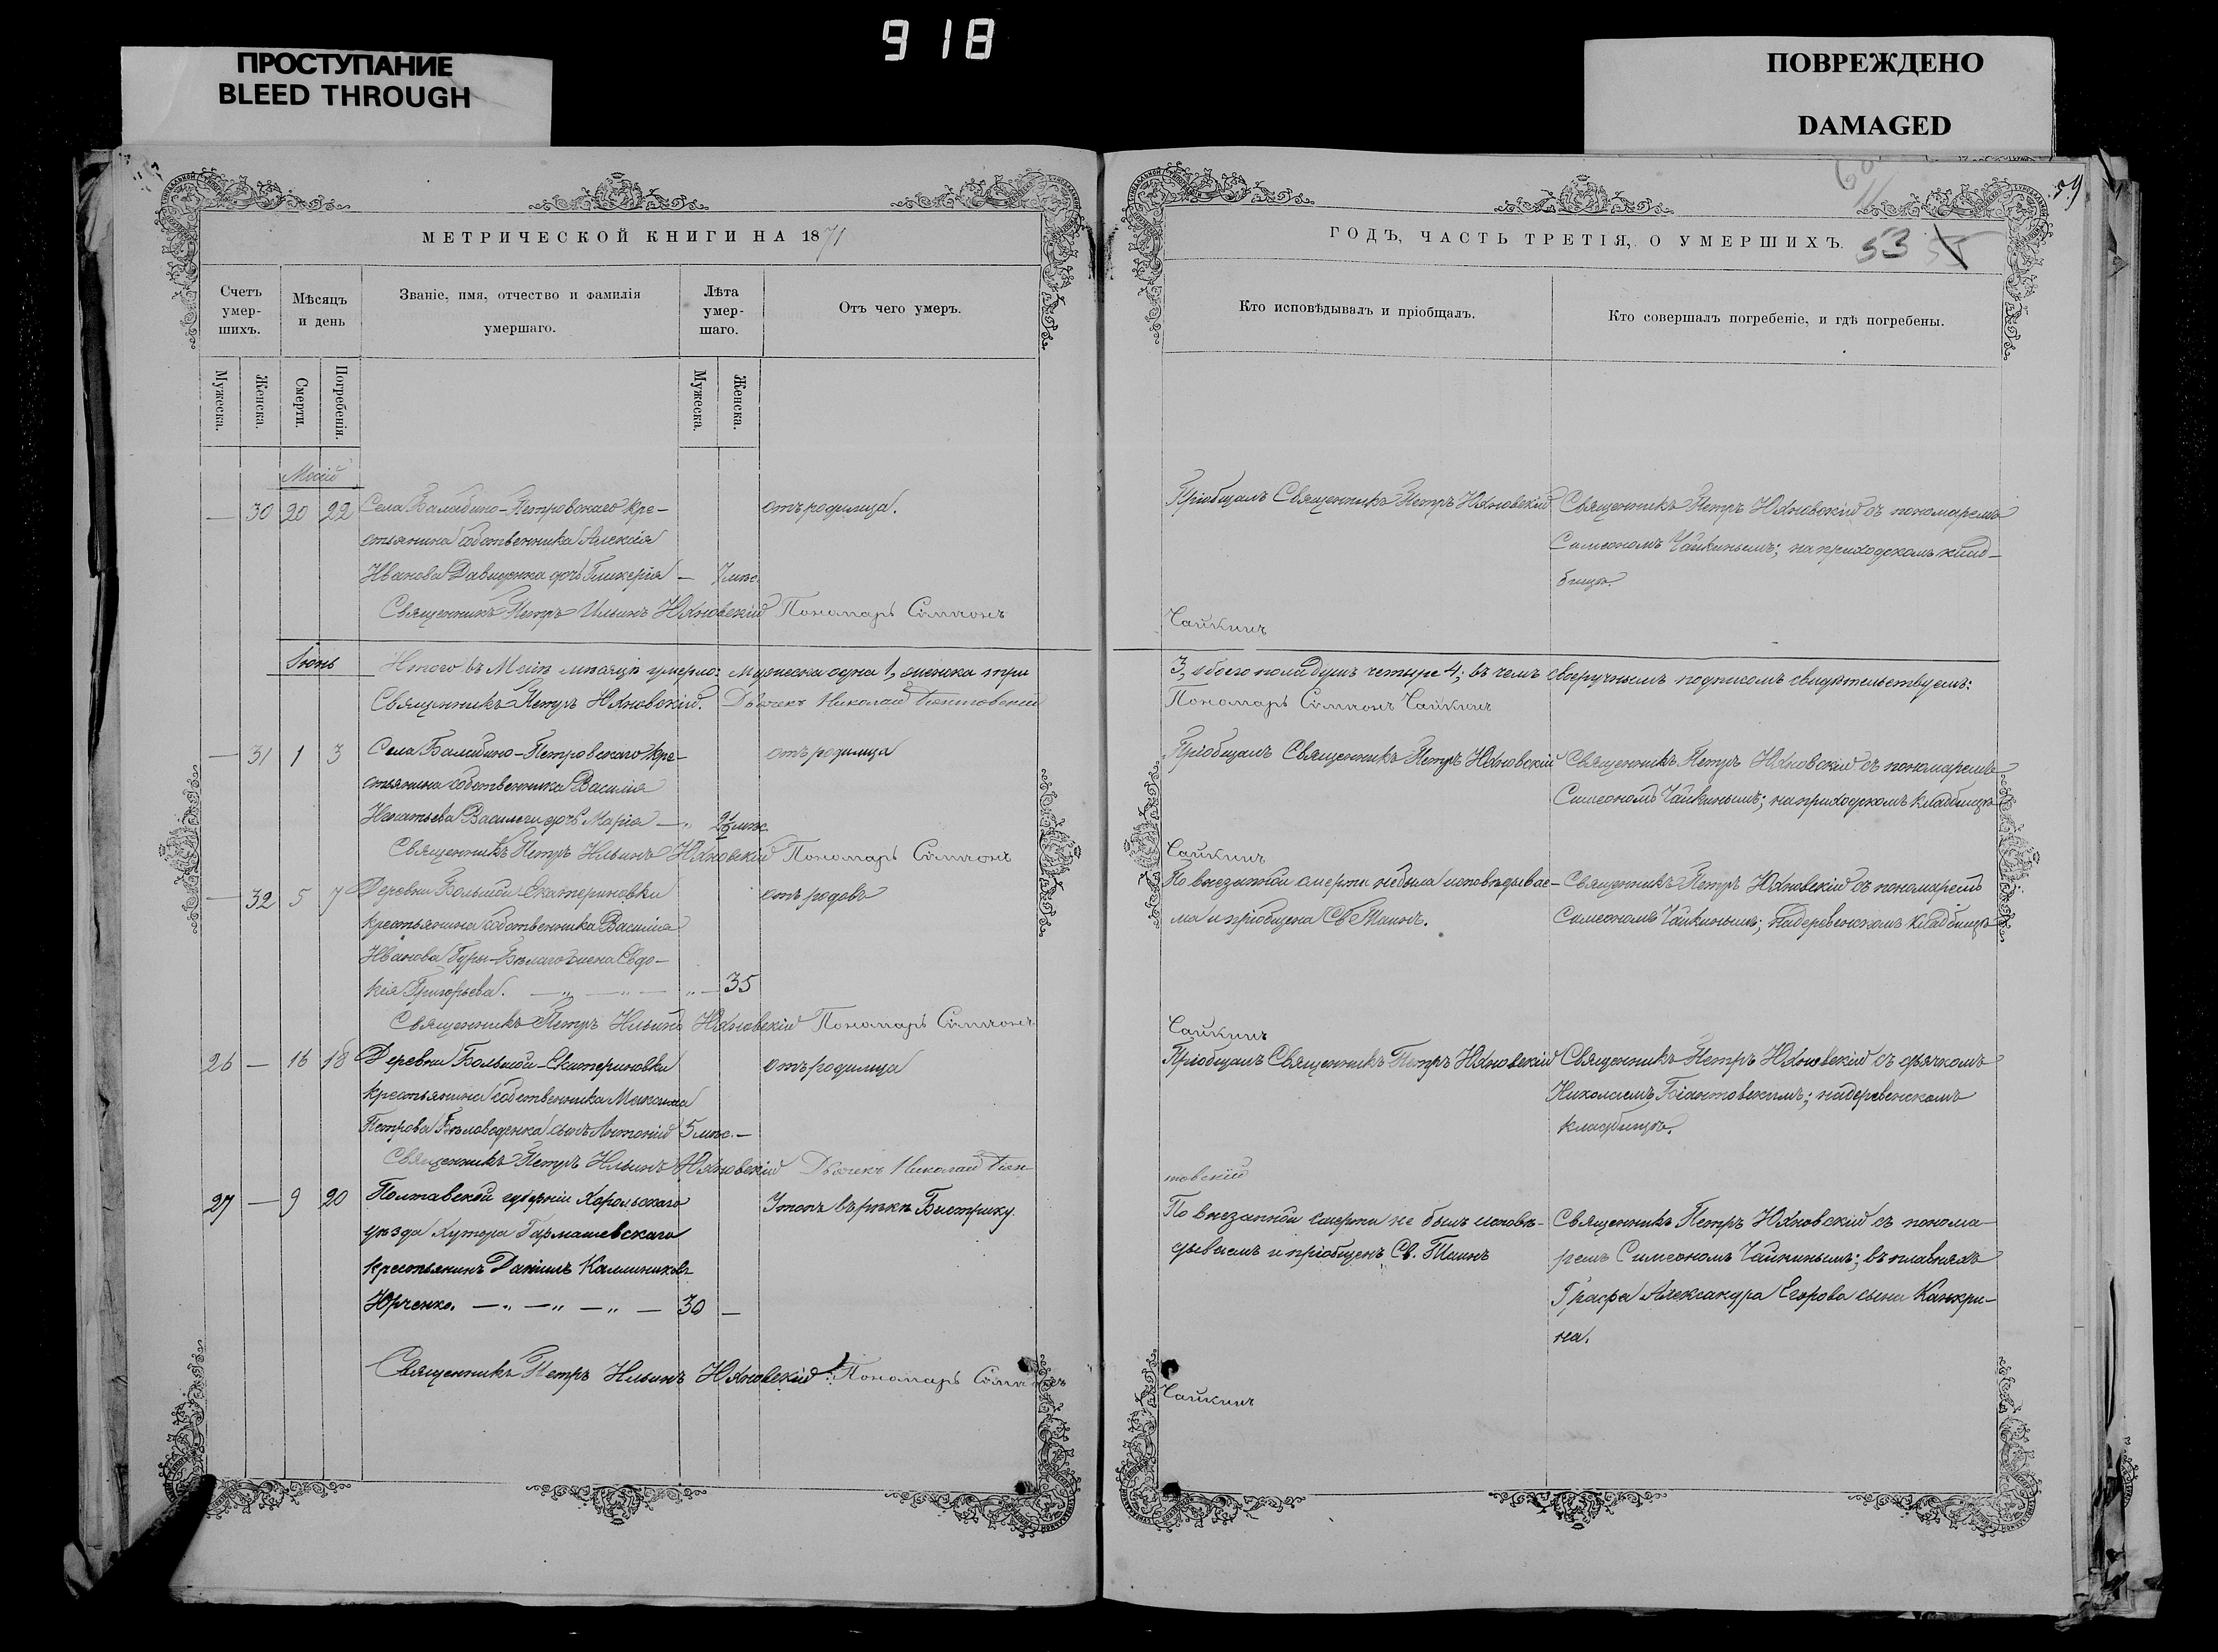 918
ПРОСТУПАНИЕ
BLEED THROUGH
ПОВРЕЖДЕНО
DAMAGED
МЕТРИЧЕСКОЙ КНИГИ НА 1871
Счетъ умер-шихъ.
Мѣсяцъ и день
Званіе, имя, отчество и фамилія умершаго.
Лѣта умер-шаго.
Отъ чего умеръ.
Мужеска.
Женска.
Смерти.
Погребенія.
Мужеска.
Женска.
Маій
— 30 20 22 Села Балабино-Петровскаго кре- отъ родимца.
стьянина собственника Алексія
Иванова Давиденка дочь Гликерія — 7 мѣс.
Священникъ Петръ Ильинъ Юхновскій Пономарь Сѵмеонъ
Іюнь Итого въ Маѣ мѣсяцѣ умерло: мужеска одна 1, женска три
Священникъ Петръ Юхновскій. Дьячекъ Николай
— 31 1 3 Села Балабино-Петровскаго кре- отъ родимца
стьянина собственника Василія
Игнатьева дочь Марія — 2½ мѣс.
Священникъ Петръ Ильинъ Юхновскій Пономарь Сѵмеонъ
— 32 5 7 Деревни Большой-Екатериновки отъ родовъ
крестьянина собственника Василія
Иванова Гуры-Бѣлаго жена Евдо-
кія Григорьева. — 35
Священникъ Петръ Ильинъ Юхновскій Пономарь Сѵмеонъ
26 — 16 18 Деревни Большой-Екатериновки отъ родимца
крестьянина собственника Максима
Петрова Бѣловоденка сынъ Антоній 5 мѣс. —
Священникъ Петръ Ильинъ Юхновскій Дьячекъ Николай
27 — 9 20 Полтавской губерніи Хорольскаго Утопъ въ рѣкѣ Быстрику.
уѣзда Хутора Гармашевскаго
крестьянинъ Даніилъ Калиниковъ
Юрченко. — 30 —
Священникъ Петръ Ильинъ Юхновскій. Пономарь Сѵмеонъ
59
ГОДЪ, ЧАСТЬ ТРЕТІЯ, О УМЕРШИХЪ. 53
Кто исповѣдывалъ и пріобщалъ.
Кто совершалъ погребеніе, и гдѣ погребены.
Пріобщалъ Священникъ Петръ Юхновскій Священникъ Петръ Юхновскій съ пономаремъ
Симеономъ Чайкинымъ; на приходскомъ клад-
бищѣ.
Чайкинъ
3, обоего пола душъ четыре 4; въ чемъ своеручнымъ подписомъ свидѣтельствуемъ:
Пономарь Сѵмеонъ Чайкинъ
Пріобщалъ Священникъ Петръ Юхновскій Священникъ Петръ Юхновскій съ пономаремъ
Симеономъ Чайкинымъ; на приходскомъ кладбищѣ
Чайкинъ
По внезапной смерти небыла исповѣдывае- Священникъ Петръ Юхновскій съ пономаремъ
ма и пріобщена Св. Таинъ. Симеономъ Чайкинымъ; на деревенскомъ кладбищѣ
Чайкинъ
Пріобщалъ Священникъ Петръ Юхновскій Священникъ Петръ Юхновскій съ дьячкомъ
Николаемъ Біантовскимъ; на деревенскомъ
кладбищѣ.
товскій
По внезапной смерти не былъ исповѣ- Священникъ Петръ Юхновскій съ понома-
дываемъ и пріобщенъ Св. Таинъ ремъ Симеономъ Чайкинымъ; въ плавняхъ
Графа Александра Егорова сына Канкри-
на.
Чайкинъ